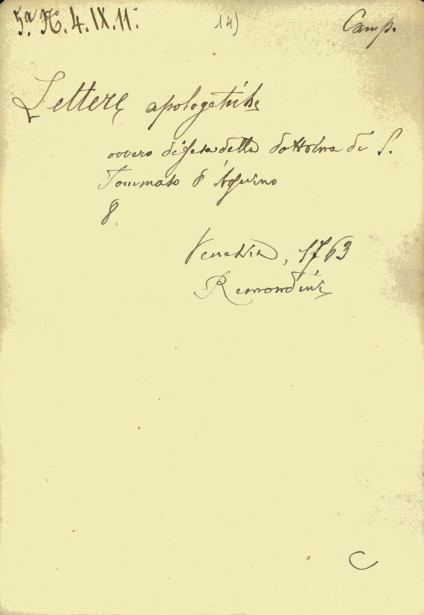 5.a N. 4. IX. 11. 14) Camp.
Lettere apologetiche
ovvero difesa della dottrina di S.
Tommaso d'Aquino
8.
Venezia, 1763
Remondini
C